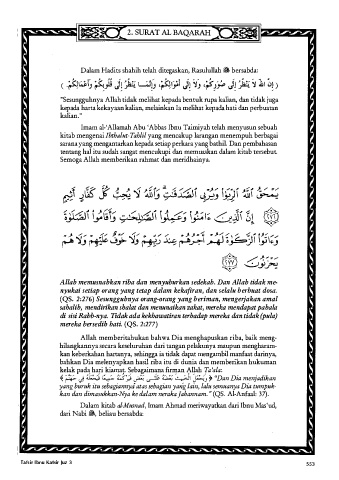 2. SURAT AL BAQARAH
Dalam Hadits shahih telah ditegaskan, Rasulullah ﷺ bersabda:
( إِنَّ اللهَ لاَ يَنْظُرُ إِلَى صُوَرِكُمْ، وَلاَ إِلَى أَمْوَالِكُمْ، وَإِنَّمَا يَنْظُرُ إِلَى قُلُوبِكُمْ وَأَعْمَالِكُمْ. )
"Sesungguhnya Allah tidak melihat kepada bentuk rupa kalian, dan tidak juga
kepada harta kekayaan kalian, melainkan Ia melihat kepada hati dan perbuatan
kalian."
Imam al-'Allamah Abu 'Abbas Ibnu Taimiyah telah menyusun sebuah
kitab mengenai Ibthalut-Tahlil yang mencakup larangan menempuh berbagai
sarana yang mengantarkan kepada setiap perkara yang bathil. Dan pembahasan
tentang hal itu sudah sangat mencukupi dan memuaskan dalam kitab tersebut.
Semoga Allah memberikan rahmat dan meridhainya.
يَمْحَقُ اللَّهُ الرِّبَوٰا وَيُرْبِي الصَّدَقَٰتِ وَاللَّهُ لَا يُحِبُّ كُلَّ كَفَّارٍ أَثِيمٍ
﴿٢٧٦﴾ إِنَّ الَّذِينَ ءَامَنُوا وَعَمِلُوا الصَّٰلِحَٰتِ وَأَقَامُوا الصَّلَوٰةَ
وَءَاتَوُا الزَّكَوٰةَ لَهُمْ أَجْرُهُمْ عِندَ رَبِّهِمْ وَلَا خَوْفٌ عَلَيْهِمْ وَلَا هُمْ
يَحْزَنُونَ ﴿٢٧٧﴾
Allah memusnahkan riba dan menyuburkan sedekah. Dan Allah tidak me-
nyukai setiap orang yang tetap dalam kekafiran, dan selalu berbuat dosa.
(QS. 2:276) Sesungguhnya orang-orang yang beriman, mengerjakan amal
sahalih, mendirikan shalat dan menunaikan zakat, mereka mendapat pahala
di sisi Rabb-nya. Tidak ada kekhawatiran terhadap mereka dan tidak (pula)
mereka bersedih hati. (QS. 2:277)
Allah memberitahukan bahwa Dia menghapuskan riba, baik meng-
hilangkannya secara keseluruhan dari tangan pelakunya maupun mengharam-
kan keberkahan hartanya, sehingga ia tidak dapat mengambil manfaat darinya,
bahkan Dia melenyapkan hasil riba itu di dunia dan memberikan hukuman
kelak pada hari kiamat. Sebagaimana firman Allah Ta'ala:
﴿ وَيَجْعَلَ الْخَبِيثَ بَعْضَهُ عَلَىٰ بَعْضٍ فَيَرْكُمَهُ جَمِيعًا فَيَجْعَلَهُ فِي جَهَنَّمَ ﴾ "Dan Dia menjadikan
yang buruk itu sebagiannya atas sebagian yang lain, lalu semuanya Dia tumpuk-
kan dan dimasukkan-Nya ke dalam neraka Jahannam." (QS. Al-Anfaal: 37).
Dalam kitab al-Musnad, Imam Ahmad meriwayatkan dari Ibnu Mas'ud,
dari Nabi ﷺ, beliau bersabda:
Tafsir Ibnu Katsir Juz 3
553